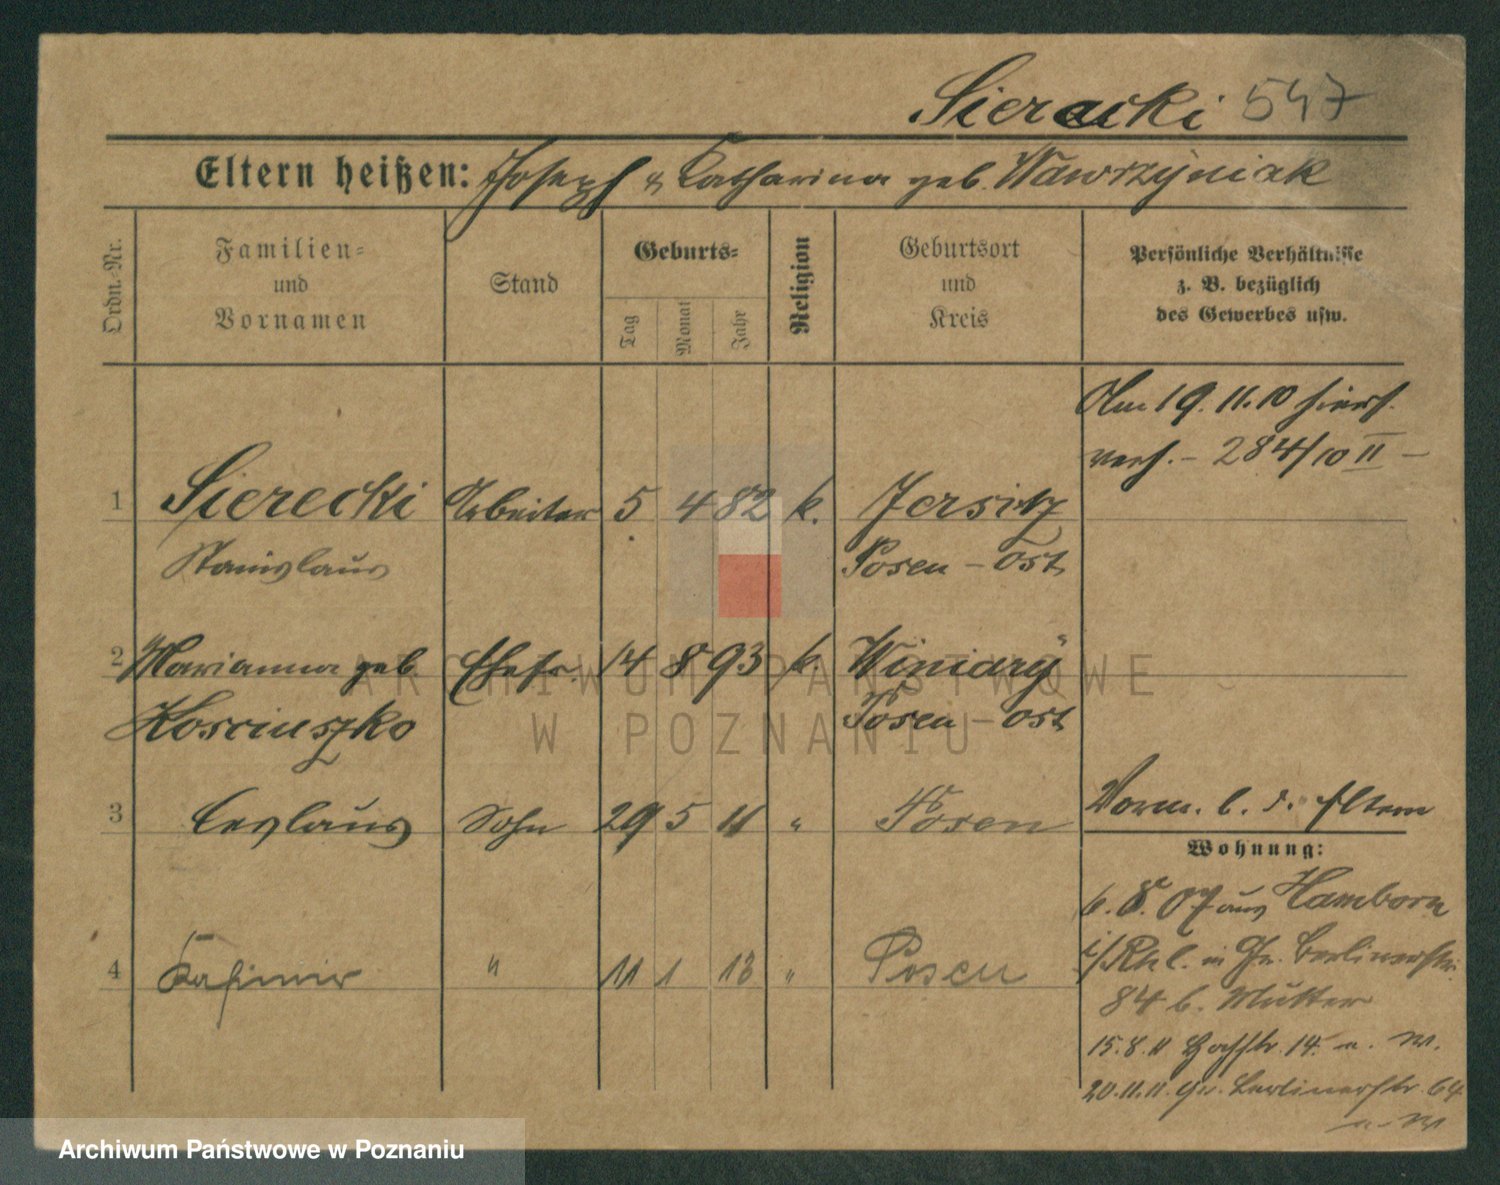 Sieracki 547
Eltern heißen: Joseph & Katharina geb. Wawrzyniak
Ordn.-Nr.
Familien-
und
Vornamen
Stand
Geburts-
Tag
Monat
Jahr
Religion
Geburtsort
und
Kreis
Persönliche Verhältnisse
z. B. bezüglich
des Gewerbes usw.
Am 19. 11. 10 hiers.
verh. – 284/10 II –
1 Sierecki Arbeiter 5 4 82 k. Jersitz
Stanislaus Posen – Ost
2 Marianna geb Ehefr. 14 8 93 k. Winiary
Kosciuszko Posen – Ost
3 Ceslaus Sohn 29 5 11 " Posen
Vorm. b. d. Eltern
Wohnung:
6. 8. 07 aus Hamborn
4 Kasimir " 11 1 13 " Posen
i/Rhl. in Gr. Berlinerstr.
84 b. Mutter
15. 8. 11 14. u. W.
20. 11. 11. Gr. Berlinerstr. 64
u. W
ARCHIWUM PAŃSTWOWE
W POZNANIU
Archiwum Państwowe w Poznaniu